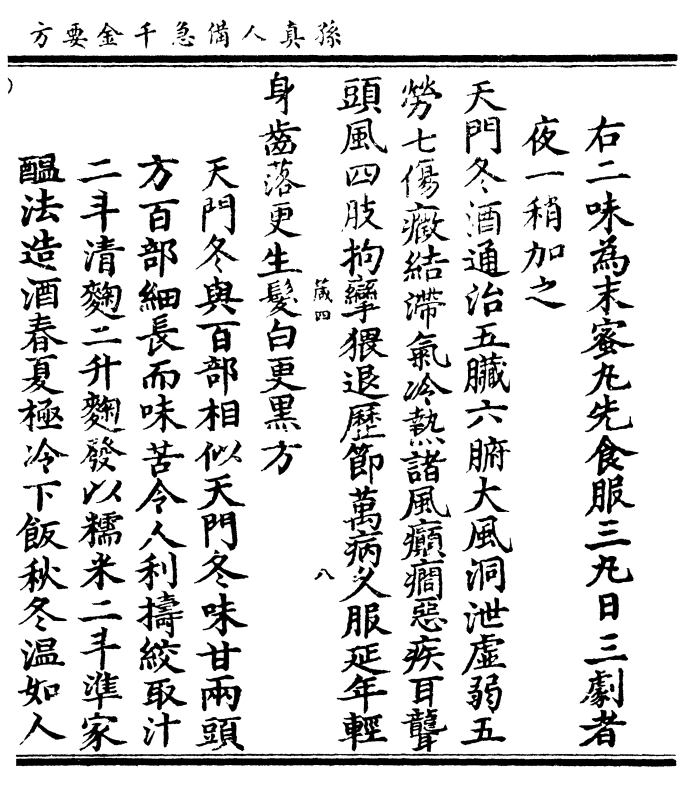 孫真人備急千金要方
右二味為末蜜丸先食服三丸日三劇者
夜一稍加之
天門冬酒通治五臟六腑大風洞泄虛弱五
勞七傷癥結滯氣冷熱諸風癲癇惡疾耳聾
頭風四肢拘攣猥退歷節萬病久服延年輕
身齒落更生髮白更黑方
天門冬與百部相似天門冬味甘兩頭
方百部細長而味苦令人利擣絞取汁
二斗清麴二升麴發以糯米二斗準家
醞法造酒春夏極冷下飯秋冬温如人
八